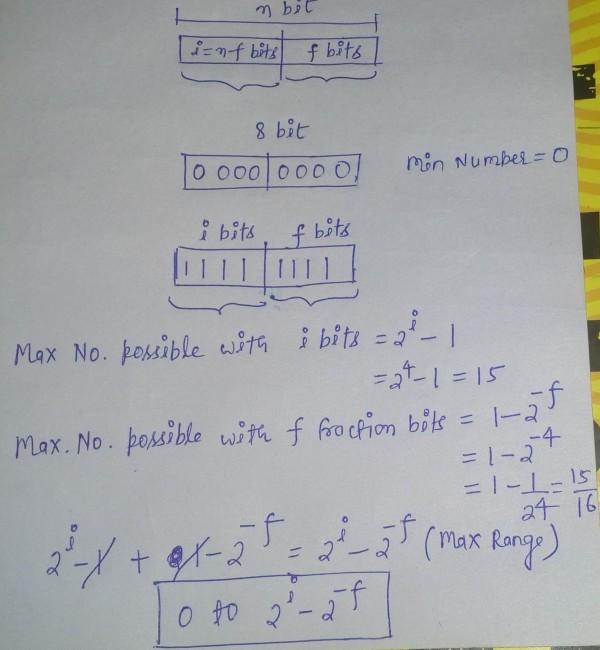 n bit
i=n-f bits f bits
8 bit
0 000 0000 Min Number=0
i bits f bits
1111 1111
Max No. possible with i bits = 2^i - 1
= 2^4 - 1 = 15
Max. No. possible with f fraction bits = 1 - 2^-f
= 1 - 2^-4
= 1 - 1/24 = 15/16
2^i - 1 + 1 - 2^-f = 2^i - 2^-f (Max Range)
0 to 2^i - 2^-f